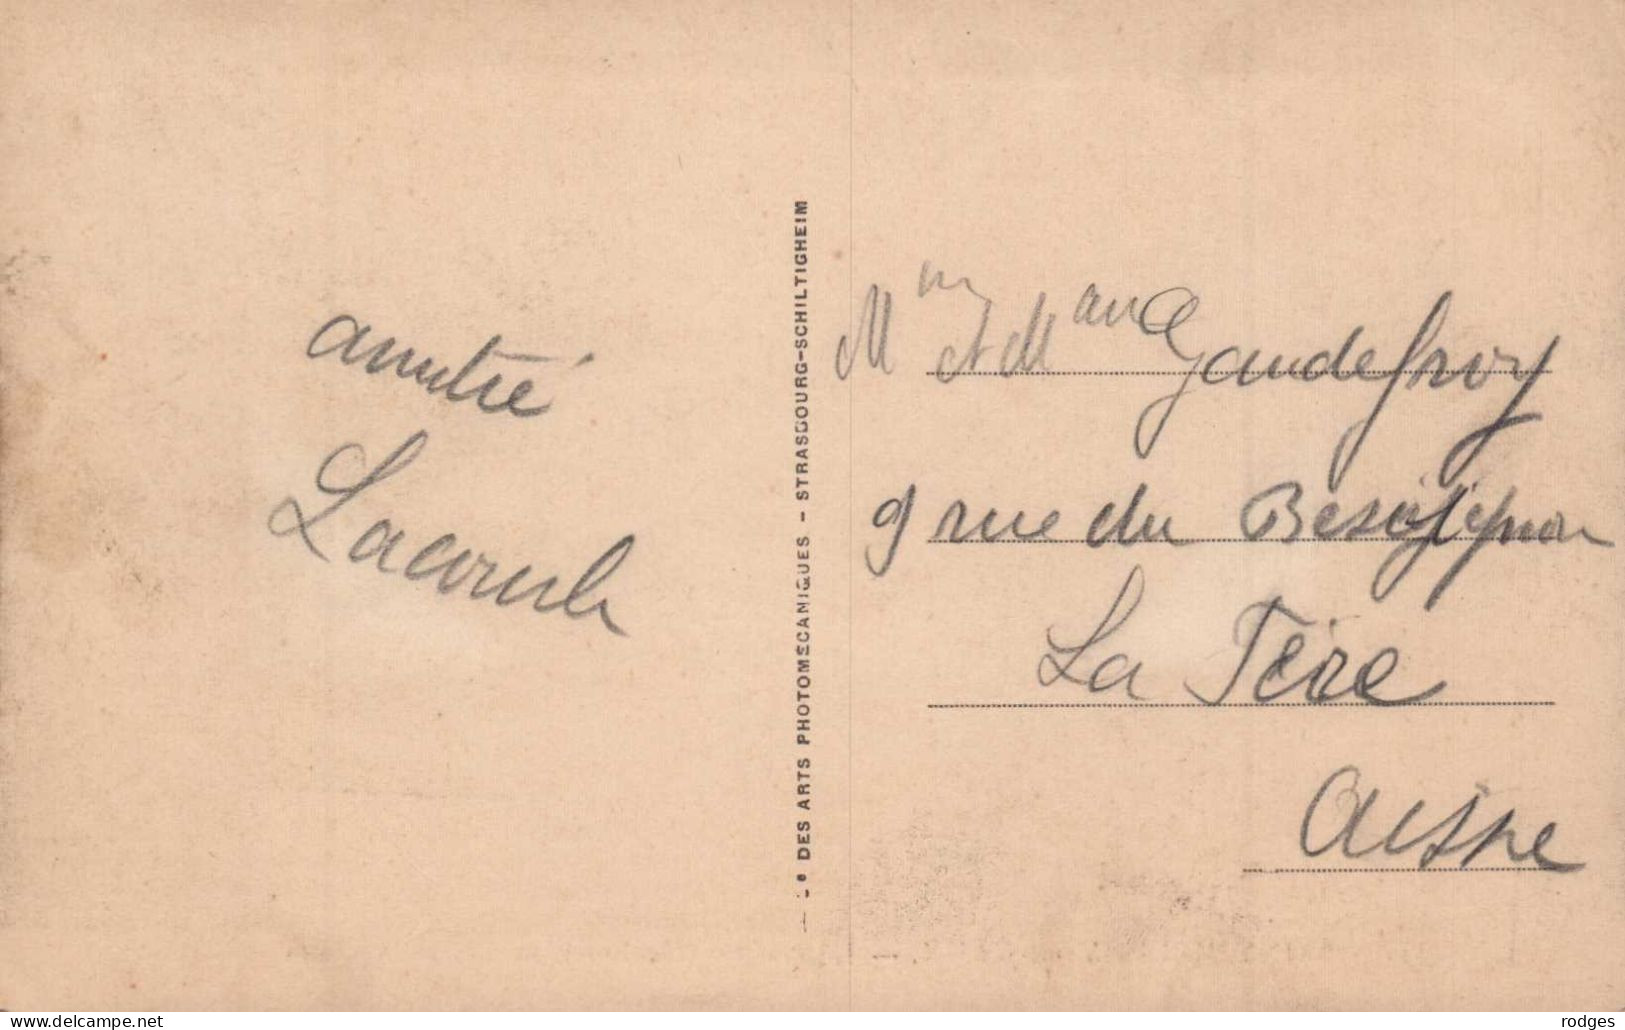 amitié
Lacomb
Cie DES ARTS PHOTOMÉCANIQUES - STRASBOURG-SCHILTIGHEIM
Mr et M Gaudefroy
9 rue du
La Fère
Aisne
www.delcampe.net
rodges